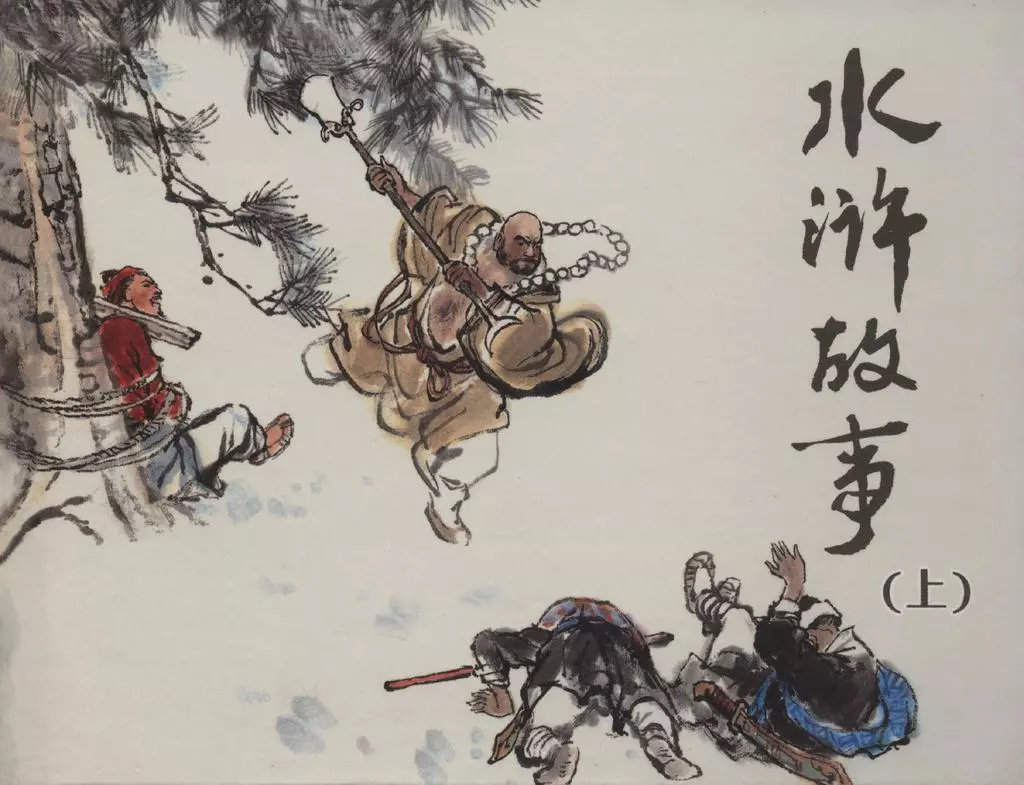 水浒故事
(上)